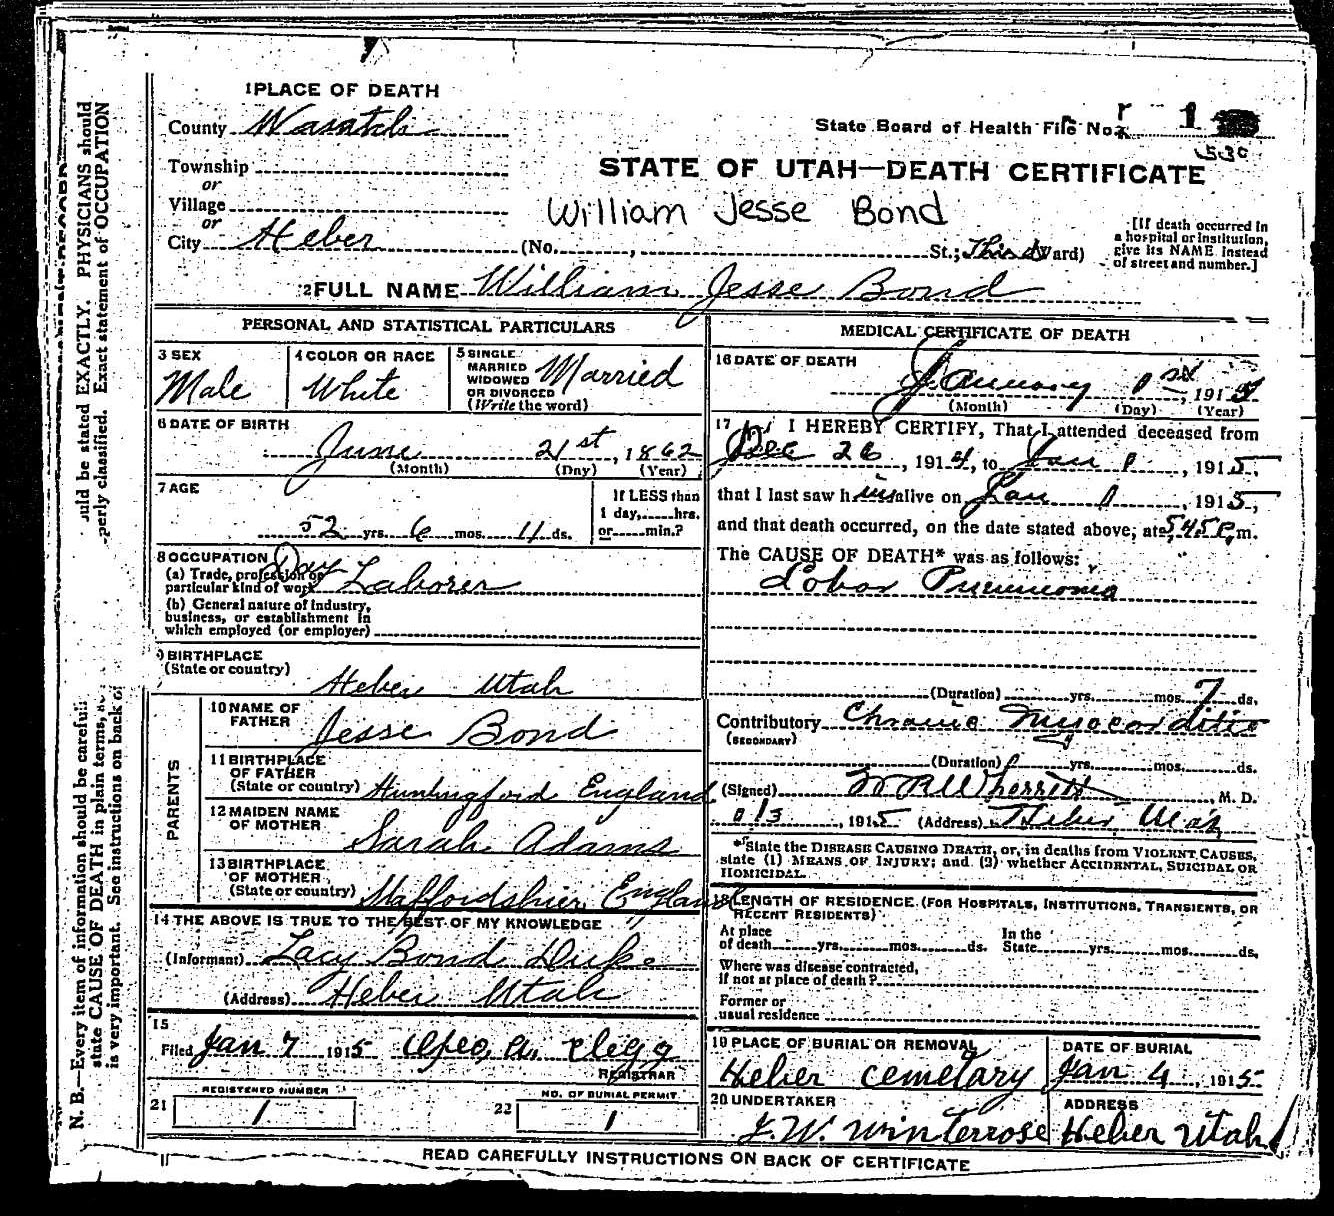 1 PLACE OF DEATH
County Wasatch
State Board of Health File No. 1
530
Township
or
Village
or
City Heber
STATE OF UTAH—DEATH CERTIFICATE
William Jesse Bond
(No. , St.; Third Ward)
[If death occurred in a hospital or institution, give its NAME instead of street and number.]
2 FULL NAME William Jesse Bond
PERSONAL AND STATISTICAL PARTICULARS
3 SEX
Male
4 COLOR OR RACE
White
5 SINGLE MARRIED WIDOWED OR DIVORCED (Write the word)
Married
6 DATE OF BIRTH
June 21st, 1862
(Month) (Day) (Year)
7 AGE
52 yrs. 6 mos. 11 ds.
If LESS than 1 day, hrs. or min.?
8 OCCUPATION
(a) Trade, profession or particular kind of work Day Laborer
(b) General nature of industry, business, or establishment in which employed (or employer)
9 BIRTHPLACE
(State or country)
Heber Utah
PARENTS
10 NAME OF FATHER
Jesse Bond
11 BIRTHPLACE OF FATHER
(State or country) England
12 MAIDEN NAME OF MOTHER
Sarah Adams
13 BIRTHPLACE OF MOTHER
(State or country) Staffordshier England
14 THE ABOVE IS TRUE TO THE BEST OF MY KNOWLEDGE
(Informant) Lacy Bond Duke
(Address) Heber Utah
15
Filed Jan 7 1915 Geo. A. Clegg
REGISTRAR
REGISTERED NUMBER
21 1
NO. OF BURIAL PERMIT
22 1
MEDICAL CERTIFICATE OF DEATH
16 DATE OF DEATH
January 1st, 1915
(Month) (Day) (Year)
17 I HEREBY CERTIFY, That I attended deceased from
Dec 26, 1914, to Jan 1, 1915,
that I last saw him alive on Jan 1, 1915,
and that death occurred, on the date stated above, at 5:45 P.m.
The CAUSE OF DEATH* was as follows:
Lobar Pneumonia
(Duration) yrs. mos. 7 ds.
Contributory Chronic Myocarditis
(SECONDARY)
(Duration) yrs. mos. ds.
(Signed) Wherritt, M. D.
1/3, 1915 (Address) Heber, Utah
*State the DISEASE CAUSING DEATH, or, in deaths from VIOLENT CAUSES, state (1) MEANS OF INJURY; and (2) whether ACCIDENTAL, SUICIDAL OR HOMICIDAL.
18 LENGTH OF RESIDENCE (FOR HOSPITALS, INSTITUTIONS, TRANSIENTS, OR RECENT RESIDENTS)
At place of death yrs. mos. ds. In the State yrs. mos. ds.
Where was disease contracted, if not at place of death?
Former or usual residence
19 PLACE OF BURIAL OR REMOVAL
Heber cemetary
DATE OF BURIAL
Jan 4, 1915
20 UNDERTAKER
J. W. Winterrose
ADDRESS
Heber Utah
READ CAREFULLY INSTRUCTIONS ON BACK OF CERTIFICATE
N. B.—Every item of information should be carefully
uld be stated EXACTLY. PHYSICIANS should
state CAUSE OF DEATH in plain terms,
perly classified. Exact statement of OCCUPATION
is very important. See instructions on back of